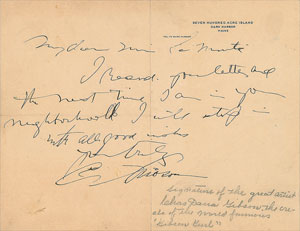 SEVEN HUNDRED ACRE ISLAND
DARK HARBOR
MAINE
My dear Mr
I your letter and
the next time I am in your
neighborhood I will stop in
with all good wishes
Yours truly
C D Gibson
Signature of the great artist
Charles Dana Gibson, the cre-
of the world famous
"Gibson Girl"